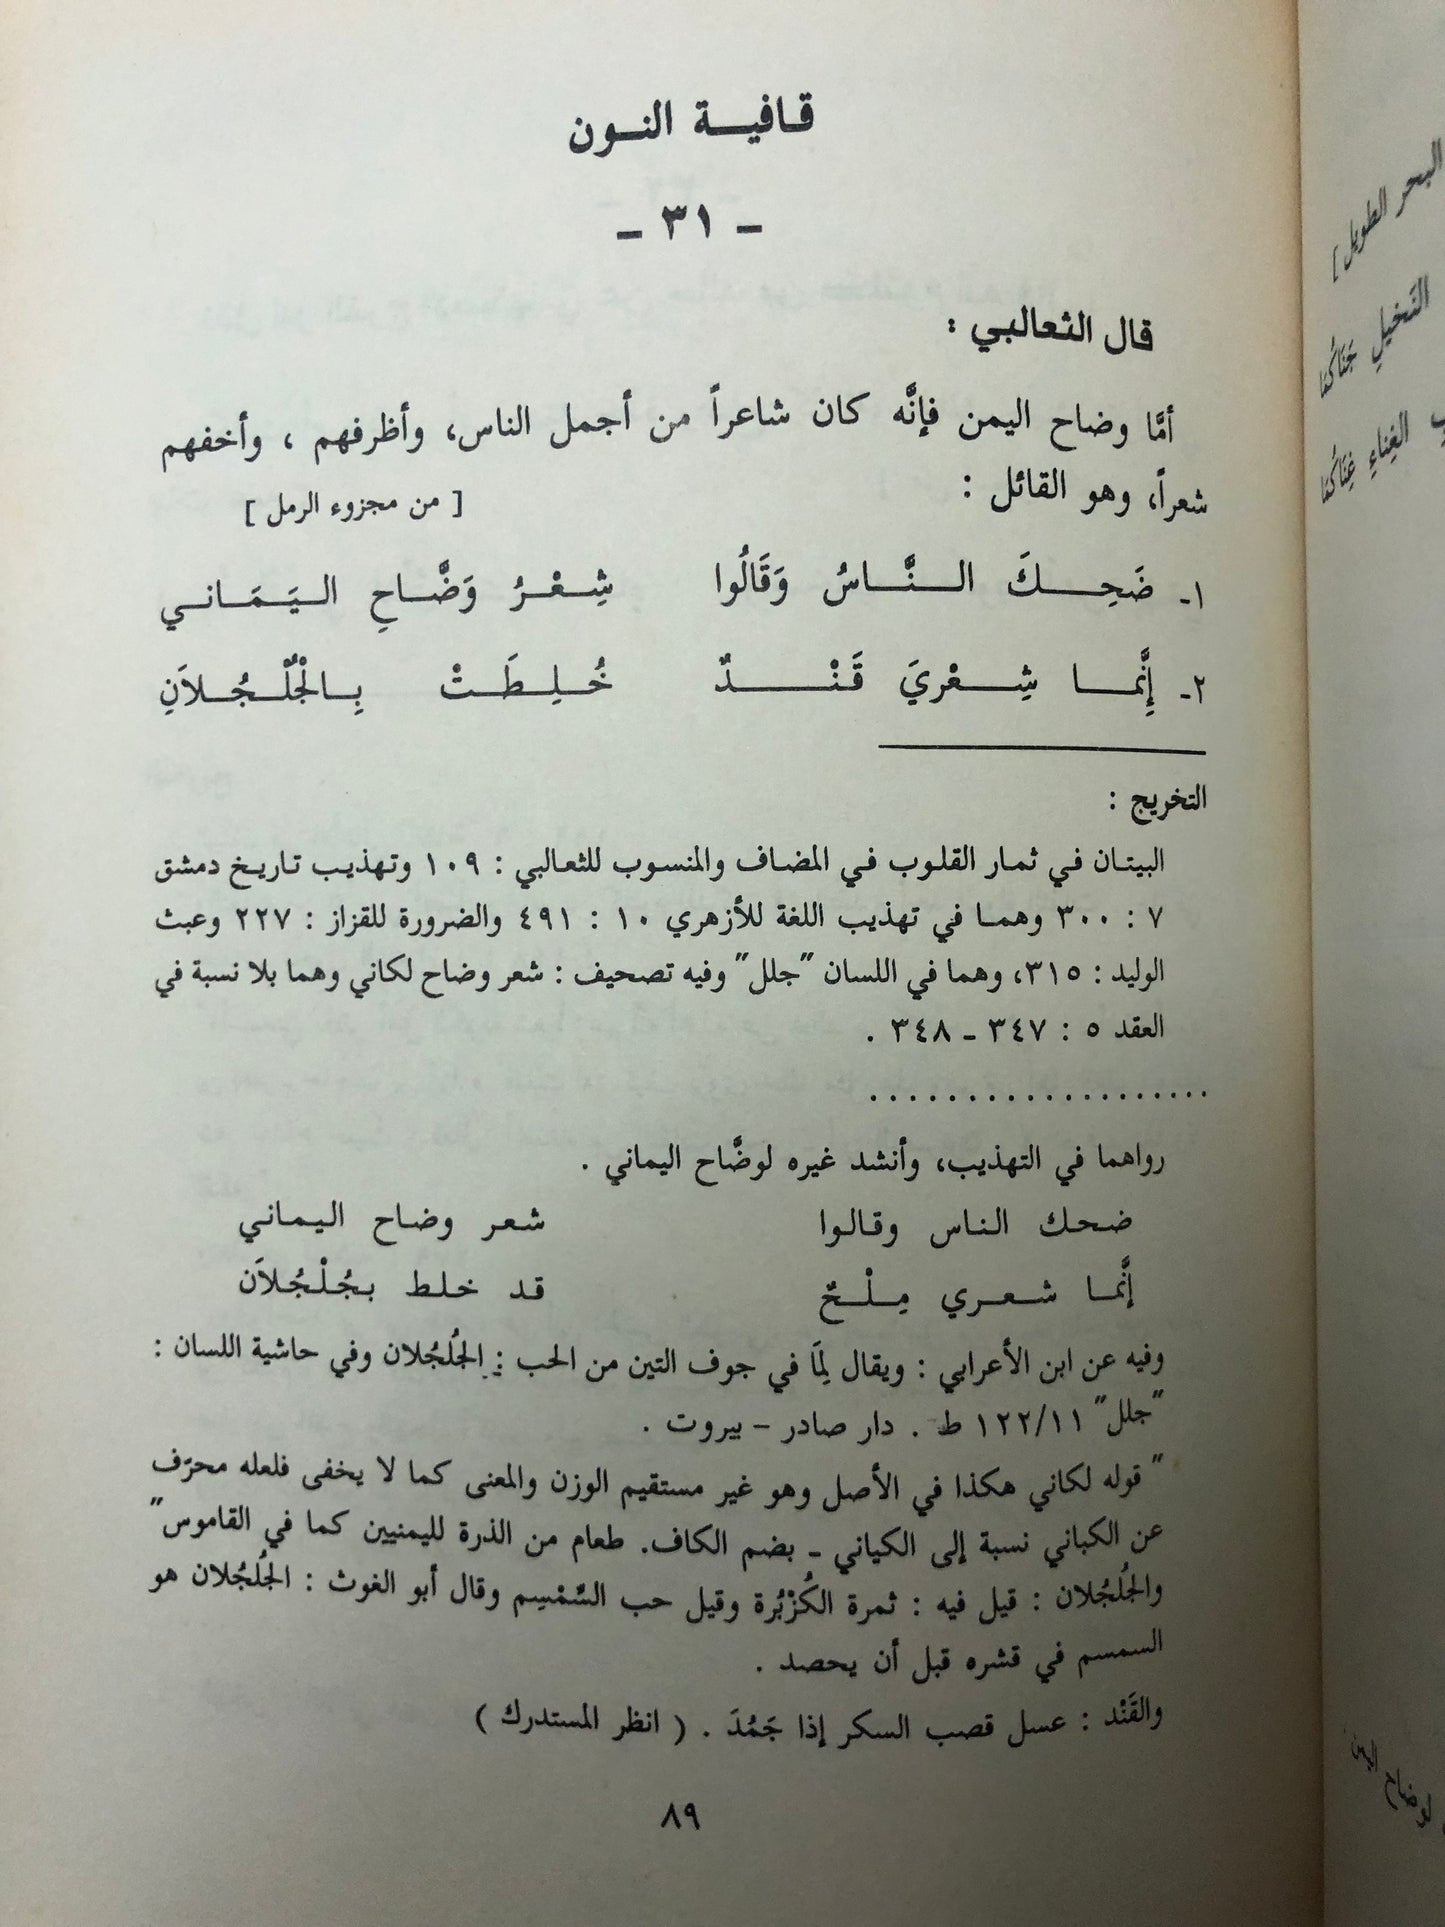 قافية النون
- ٣١ -
قال الثعالبي :
أمَّا وضاح اليمن فإنَّه كان شاعراً من أجمل الناس، وأظرفهم ، وأخفهم
شعراً، وهو القائل :
[ من مجزوء الرمل ]
١- ضَحِكَ النَّاسُ وَقَالُوا شِعْرُ وَضَّاحِ اليَمَاني
٢- إِنَّما شِعْريَ قَنْدٌ خُلِطَتْ بِالْجُلْجُلاَنِ
التخريج :
البيتان في ثمار القلوب في المضاف والمنسوب للثعالبي : ١٠٩ وتهذيب تاريخ دمشق
٧ : ٣٠٠ وهما في تهذيب اللغة للأزهري ١٠ : ٤٩١ والضرورة للقزاز : ٢٢٧ وعبث
الوليد : ٣١٥، وهما في اللسان "جلل" وفيه تصحيف : شعر وضاح لكاني وهما بلا نسبة في
العقد ٥ : ٣٤٧ - ٣٤٨ .
. . . . . . . . . . . . . . . . . . .
رواهما في التهذيب، وأنشد غيره لوضَّاح اليماني .
ضحك الناس وقالوا شعر وضاح اليماني
إنَّما شعري مِلْحٌ قد خلط بجُلْجُلاَن
وفيه عن ابن الأعرابي : ويقال لِمَا في جوف التين من الحب : الجُلجُلان وفي حاشية اللسان :
"جلل" ١٢٢/١١ ط . دار صادر - بيروت .
" قوله لكاني هكذا في الأصل وهو غير مستقيم الوزن والمعنى كما لا يخفى فلعله محرّف
عن الكباني نسبة إلى الكياني - بضم الكاف. طعام من الذرة لليمنيين كما في القاموس"
والجُلجُلان : قيل فيه : ثمرة الكُزْبُرة وقيل حب السَّمْسِم وقال أبو الغوث : الجُلجُلان هو
السمسم في قشره قبل أن يحصد .
والقَنْد : عسل قصب السكر إذا جَمُدَ . ( انظر المستدرك )
٨٩
البحر الطويل ]
النَخيلِ جَنَاكُمَا
الغِناءِ غِنَاكُمَا